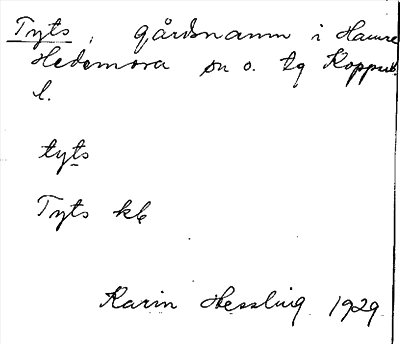 Tyts, gårdsnamn i Hamre
Hedemora sn o. tg Kopparb.
l.
tyts
Tyts kb
Karin Hessling 1929